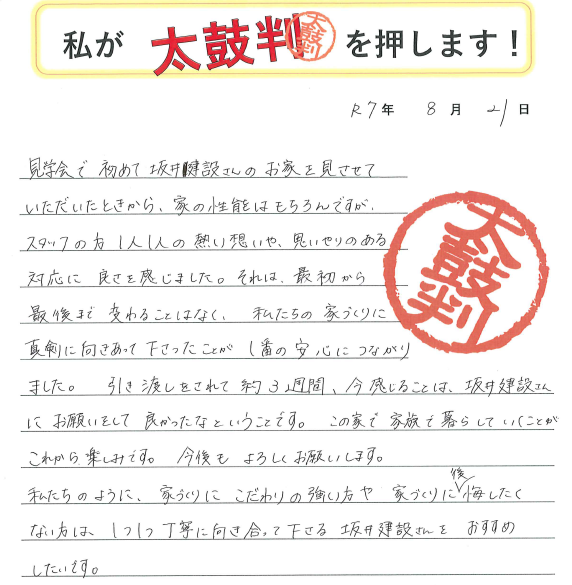 私が 太鼓判 太鼓判 を押します！
R7年 8月 21日
見学会で 初めて 坂井建設さんの お家を見させて
いただいたときから、家の性能はもちろんですが、
スタッフの方 1人1人の 熱い想いや、思いやりのある
対応に 良さを感じました。それは、最初から
最後まで 変わることはなく、 私たちの 家づくりに
太鼓判
真剣に向きあって下さったことが 1番の安心につながり
ました。 引き渡しをされて 約3週間、今感じることは、坂井建設さん
に お願いをして 良かったなということです。 この家で 家族で暮らしていくことが
これから楽しみです。 今後も よろしくお願いします。
私たちのように、家づくりに こだわりの強い方や 家づくりに後悔したく
ない方は、1つ1つ丁寧に向き合って下さる 坂井建設さんを おすすめ
したいです。